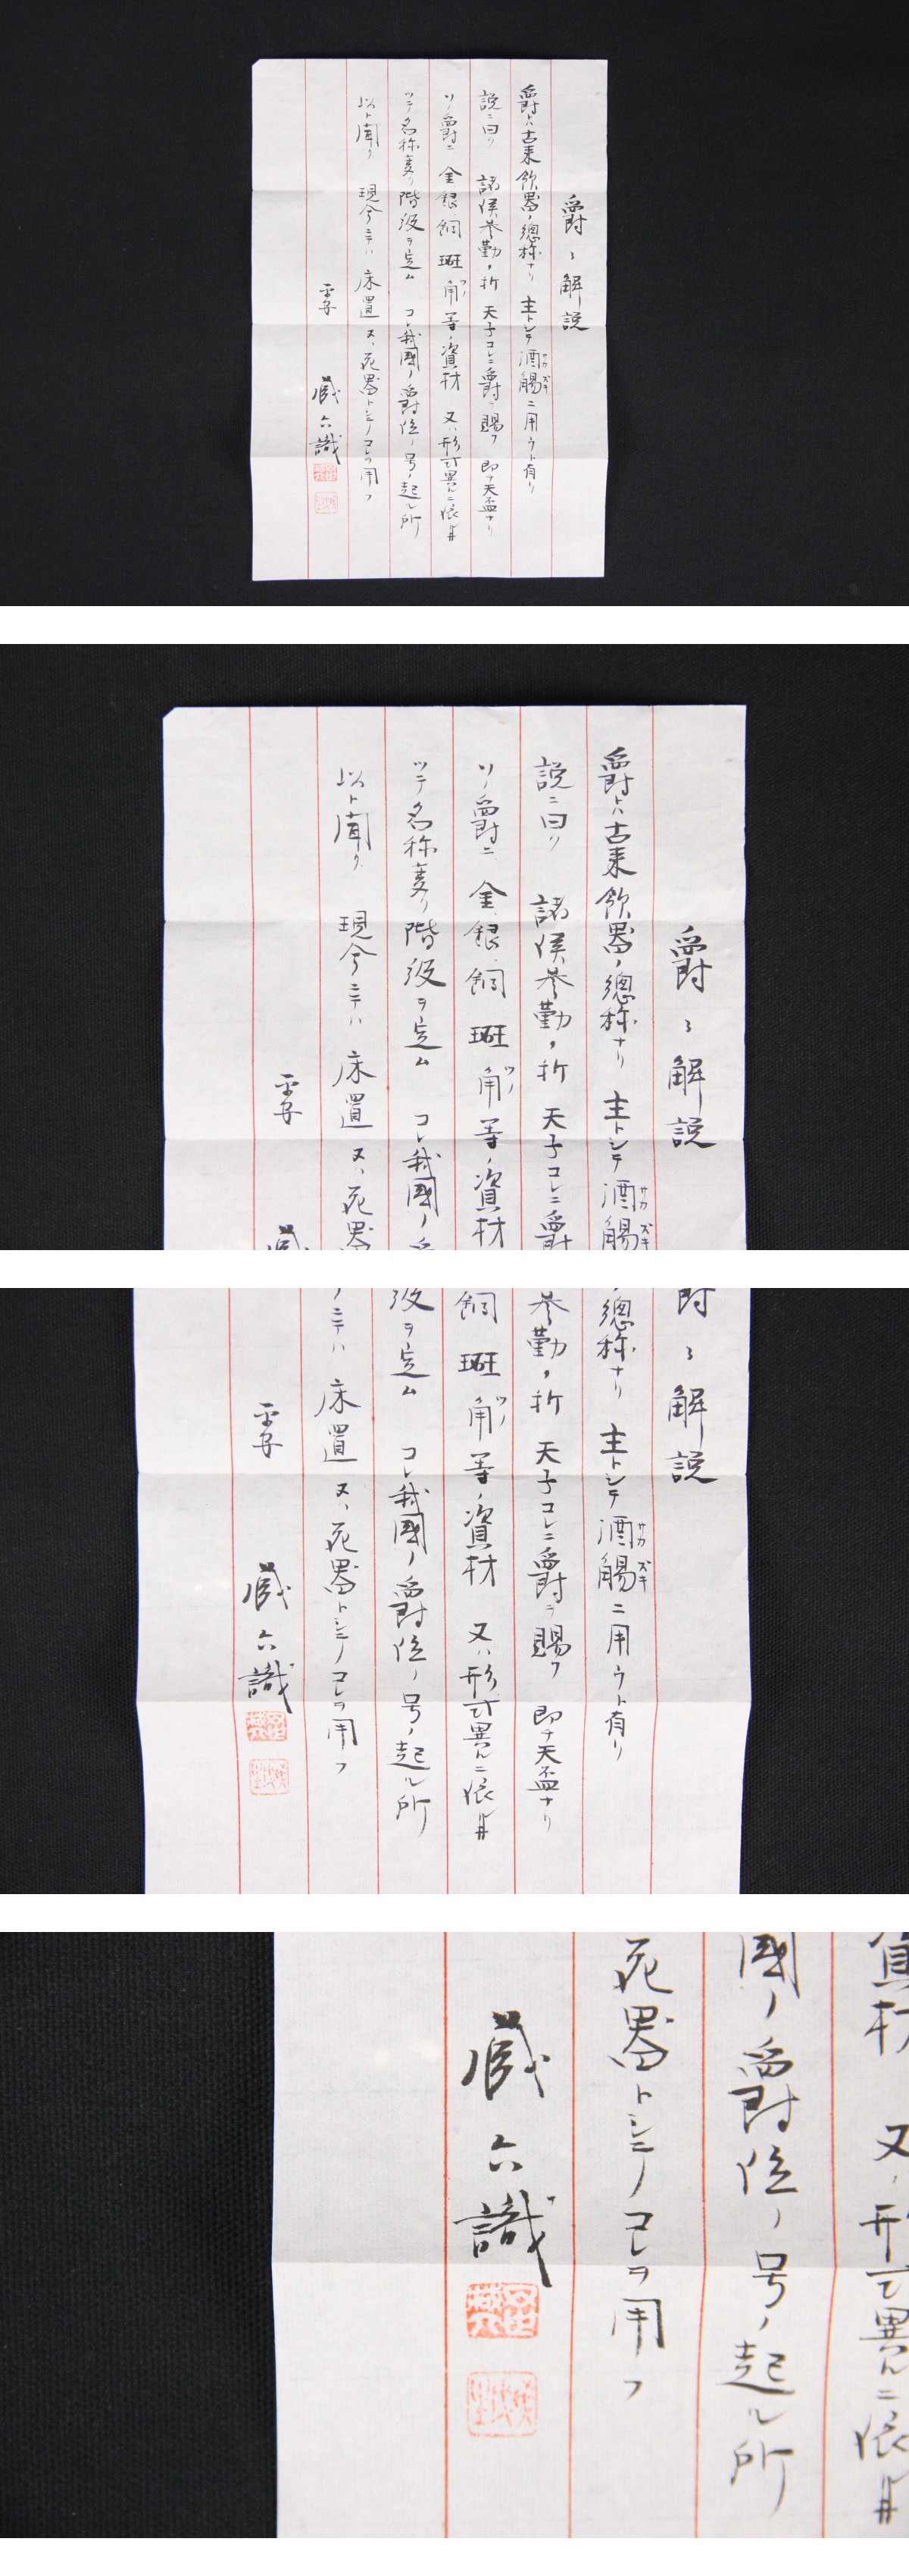 爵ノ解説
爵トハ古来飲器ノ總称ナリ 主トシテ酒觴ニ用ウト有リ
サカズキ
説ニ曰ク 諸侯参勤ノ折 天子コレニ爵ヲ賜フ 即チ天盃ナリ
ソノ爵ニ 金、銀、銅 斑 角 等ノ資材 又ハ形式異ルニ依
ツノ
ツテ名称変リ階級ヲ定ム コレ我國ノ爵位ノ号ノ起ル所
以ト聞ク 現今ニテハ 床置 又ハ花器トシテコレヲ用フ
蔵六識